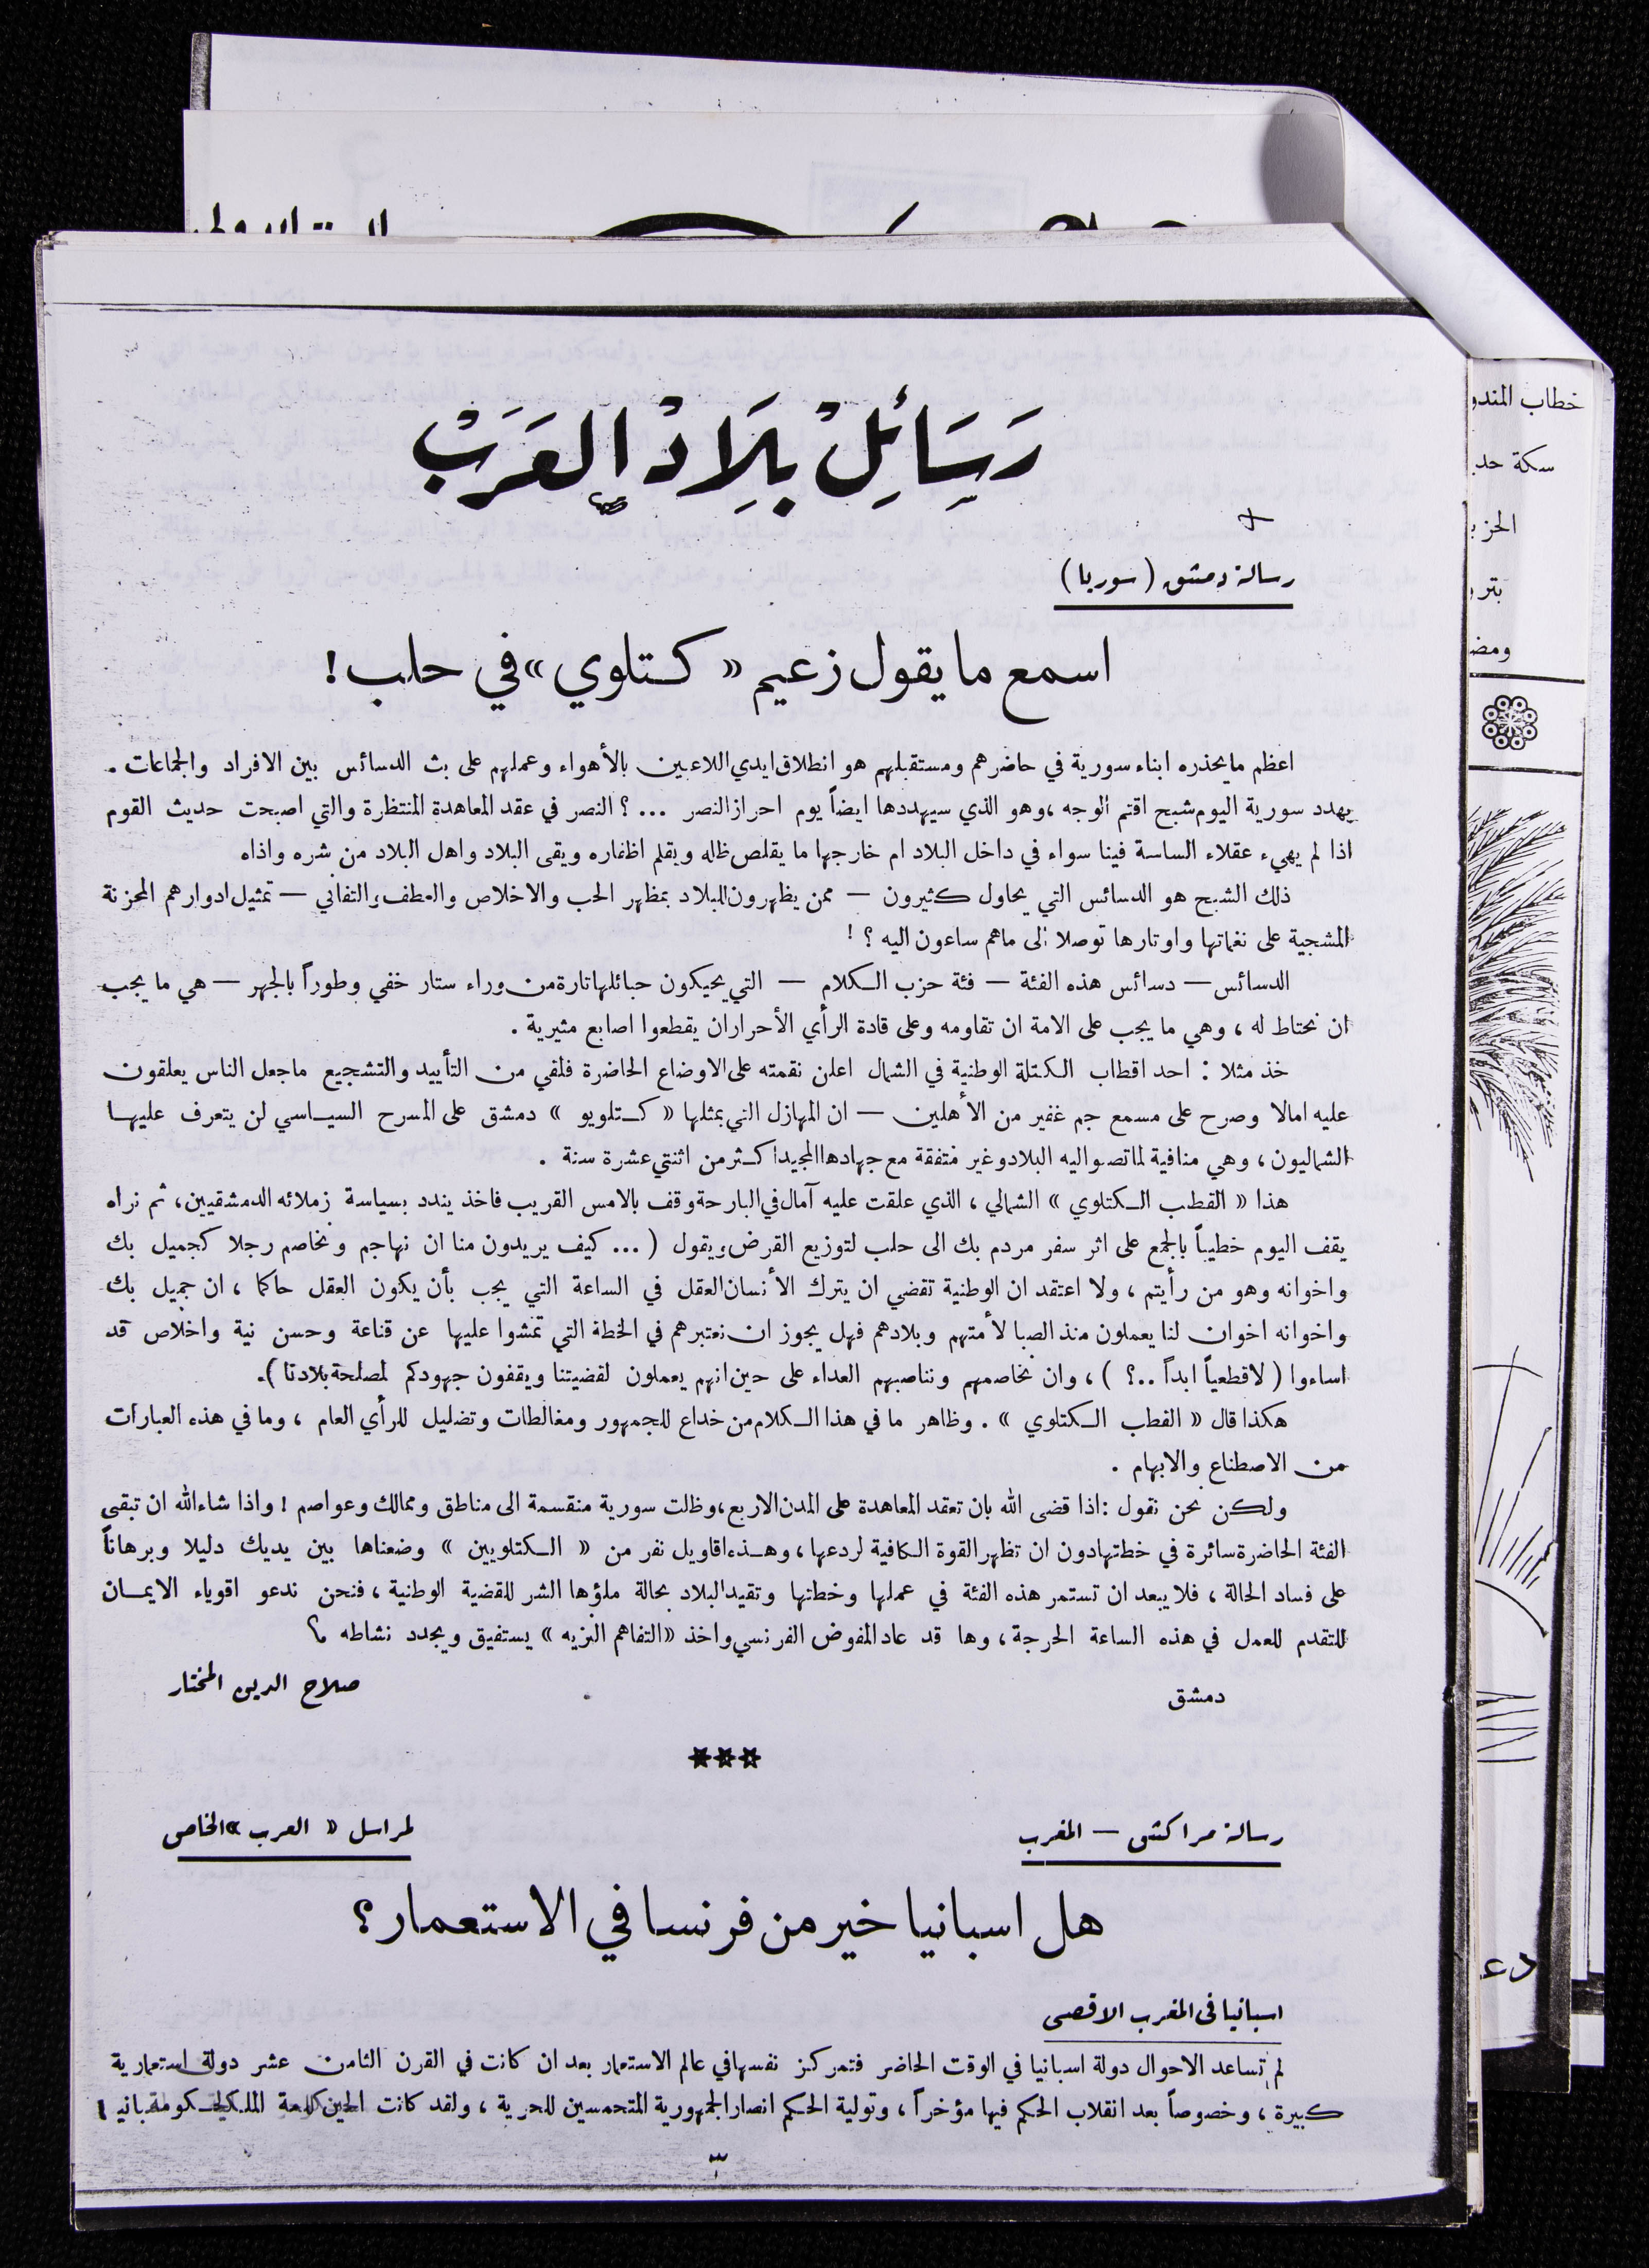 رَسَائِلْ بِلَادْ العَرَبْ
رسالة دمشق (سوريا)
اسمع ما يقول زعيم « كتلوي » في حلب !
اعظم ما يحذره ابناء سورية في حاضرهم ومستقبلهم هو انطلاق ايدي اللاعبين بالأهواء وعملهم على بث الدسائس بين الافراد والجماعات .
يهدد سورية اليوم شبح اقتم الوجه ، وهو الذي سيهددها ايضاً يوم احراز النصر ... ؟ النصر في عقد المعاهدة المنتظرة والتي اصبحت حديث القوم
اذا لم يهيء عقلاء الساسة فينا سواء في داخل البلاد ام خارجها ما يقلص ظله ويقلم اظفاره ويقى البلاد واهل البلاد من شره واذاه
ذلك الشبح هو الدسائس التي يحاول كثيرون — ممن يظهرون للبلاد بمظهر الحب والاخلاص والعطف والتفاني — تمثيل ادوارهم المحزنة
المشجية على نغماتها واوتارها توصلا الى ماهم ساعون اليه ؟ !
الدسائس — دسائس هذه الفئة — فئة حزب الكلام — التي يحيكون حبائلها تارة من وراء ستار خفي وطوراً بالجهر — هي ما يجب
ان نحتاط له ، وهي ما يجب على الامة ان تقاومه وعلى قادة الرأي الأحرار ان يقطعوا اصابع مثيرية .
خذ مثلا : احد اقطاب الكتلة الوطنية في الشمال اعلن نقمته على الاوضاع الحاضرة فلقي من التأييد والتشجيع ماجعل الناس يعلقون
عليه امالا وصرح على مسمع جم غفير من الأهلين — ان المهازل التي يمثلها « كتلويو » دمشق على المسرح السياسي لن يتعرف عليها
الشماليون ، وهي منافية لما تصبو اليه البلاد وغير متفقة مع جهادها المجيد اكثر من اثنتي عشرة سنة .
هذا « القطب الكتلوي » الشمالي ، الذي علقت عليه آمال في البارحة وقف بالامس القريب فاخذ يندد بسياسة زملائه الدمشقيين ، ثم نراه
يقف اليوم خطيباً بالجمع على اثر سفر مردم بك الى حلب لتوزيع القرض ويقول ( ... كيف يريدون منا ان نهاجم ونخاصم رجلا كجميل بك
واخوانه وهو من رأيتم ، ولا اعتقد ان الوطنية تقضي ان يترك الأنسان العقل في الساعة التي يجب بأن يكون العقل حاكما ، ان جميل بك
واخوانه اخوان لنا يعملون منذ الصبا لأمتهم وبلادهم فهل يجوز ان نعتبرهم في الخطة التي تمشوا عليها عن قناعة وحسن نية واخلاص قد
اساءوا ( لا قطعياً ابداً ..؟ ) ، وان نخاصمهم ونناصبهم العداء على حين انهم يعملون لقضيتنا ويقفون جهودكم لمصلحة بلادنا ).
هكذا قال « القطب الكتلوي » . وظاهر ما في هذا الكلام من خداع للجمهور ومغالطات وتضليل للرأي العام ، وما في هذه العبارات
من الاصطناع والابهام .
ولكن نحن نقول : اذا قضى الله بان تعقد المعاهدة على المدن الاربع ، وظلت سورية منقسمة الى مناطق وممالك وعواصم ! واذا شاء الله ان تبقى
الفئة الحاضرة سائرة في خطتها دون ان تظهر القوة الكافية لردعها ، وهذه اقاويل نفر من « الكتلويين » وضعناها بين يديك دليلا وبرهاناً
على فساد الحالة ، فلا يبعد ان تستمر هذه الفئة في عملها وخطتها وتقيد البلاد بحالة ملؤها الشر للقضية الوطنية ، فنحن ندعو اقوياء الايمان
للتقدم للعمل في هذه الساعة الحرجة ، وها قد عاد المفوض الفرنسي واخذ « التفاهم النزيه » يستفيق ويجدد نشاطه
دمشق صلاح الدين المختار
***
رسالة مراكش — المغرب لمراسل « العرب » الخاص
هل اسبانيا خير من فرنسا في الاستعمار ؟
اسبانيا في المغرب الاقصى
لم تساعد الاحوال دولة اسبانيا في الوقت الحاضر فتمركز نفسها في عالم الاستعمار بعد ان كانت في القرن الثامن عشر دولة استعمارية
كبيرة ، وخصوصاً بعد انقلاب الحكم فيها مؤخراً ، وتولية الحكم انصار الجمهورية المتحمسين للحرية ، ولقد كانت
٣
خطاب المندو
سكة حد
الحز
بتر
ومض
دع